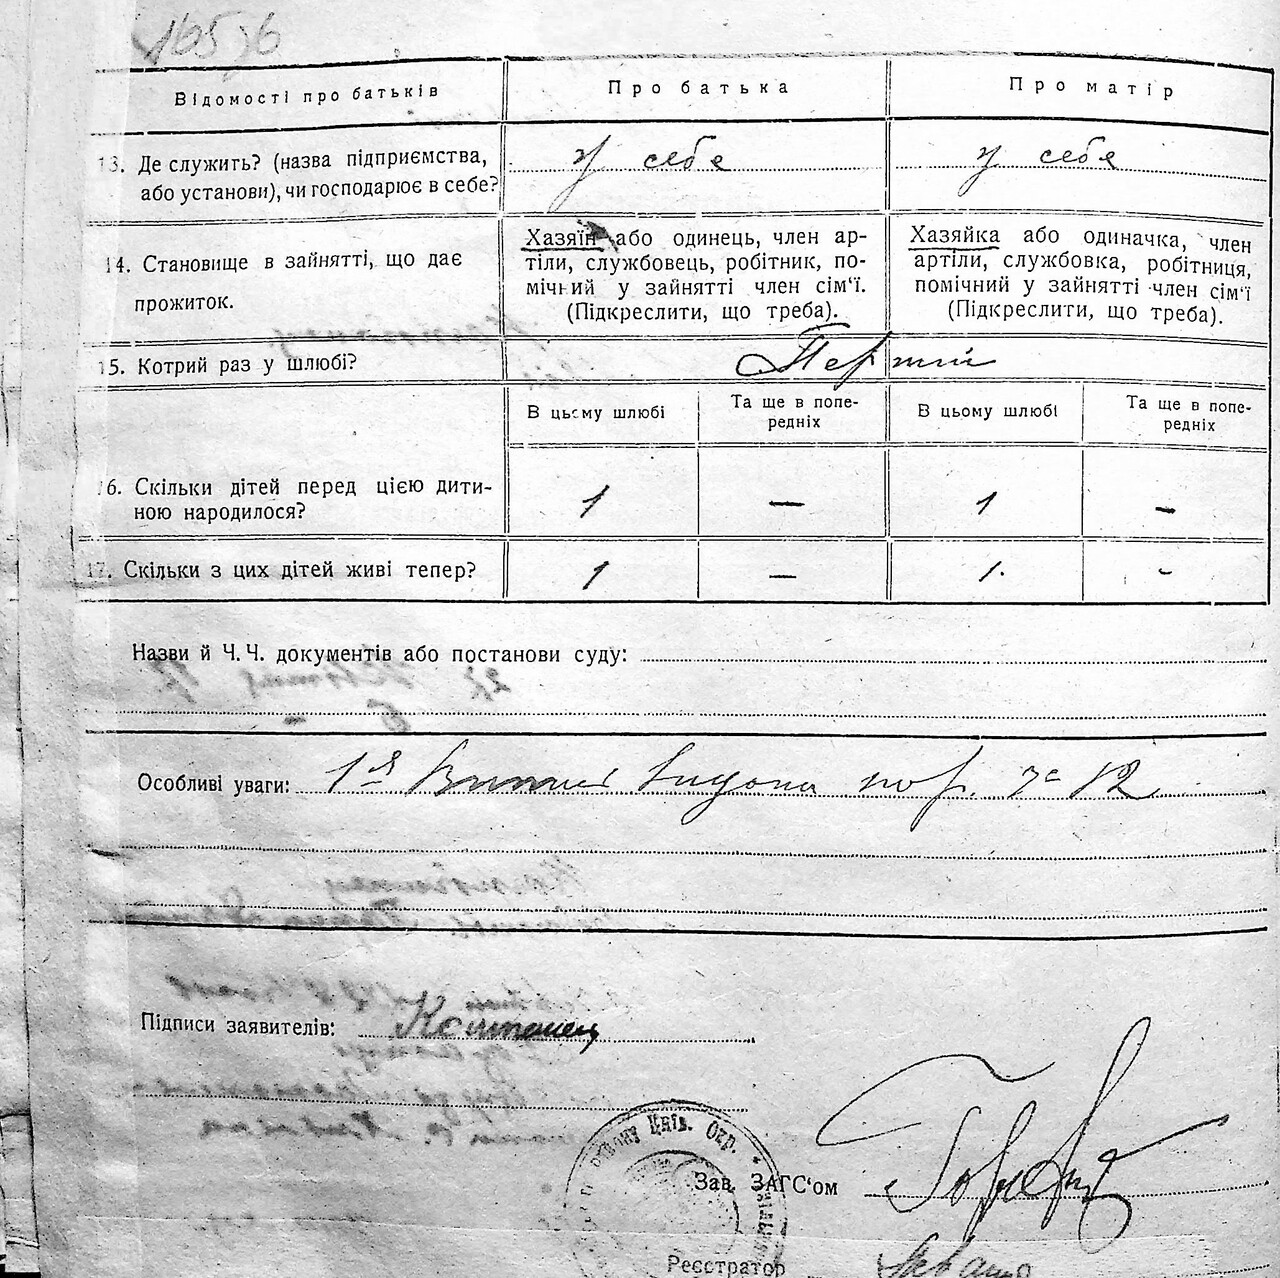 Відомості про батьків
Про батька
Про матір
13. Де служить? (назва підприємства,
або установи), чи господарює в себе?
у себе
у себе
14. Становище в зайнятті, що дає
прожиток.
Хазяїн або одинець, член ар-
тіли, службовець, робітник, по-
мічний у зайнятті член сім‘ї.
(Підкреслити, що треба).
Хазяйка або одиначка, член
артіли, службовка, робітниця,
помічний у зайнятті член сім‘ї
(Підкреслити, що треба).
15. Котрий раз у шлюбі?
Первий
В цьому шлюбі
Та ще в попе-
редніх
В цьому шлюбі
Та ще в попе-
редніх
16. Скільки дітей перед цією дити-
ною народилося?
1
—
1
-
17. Скільки з цих дітей живі тепер?
1
—
1.
-
Назви й Ч.Ч. документів або постанови суду:
Особливі уваги:
за 12
Підписи заявителів:
Київ. Окр.
Зав. ЗАГС‘ом
Реєстратор